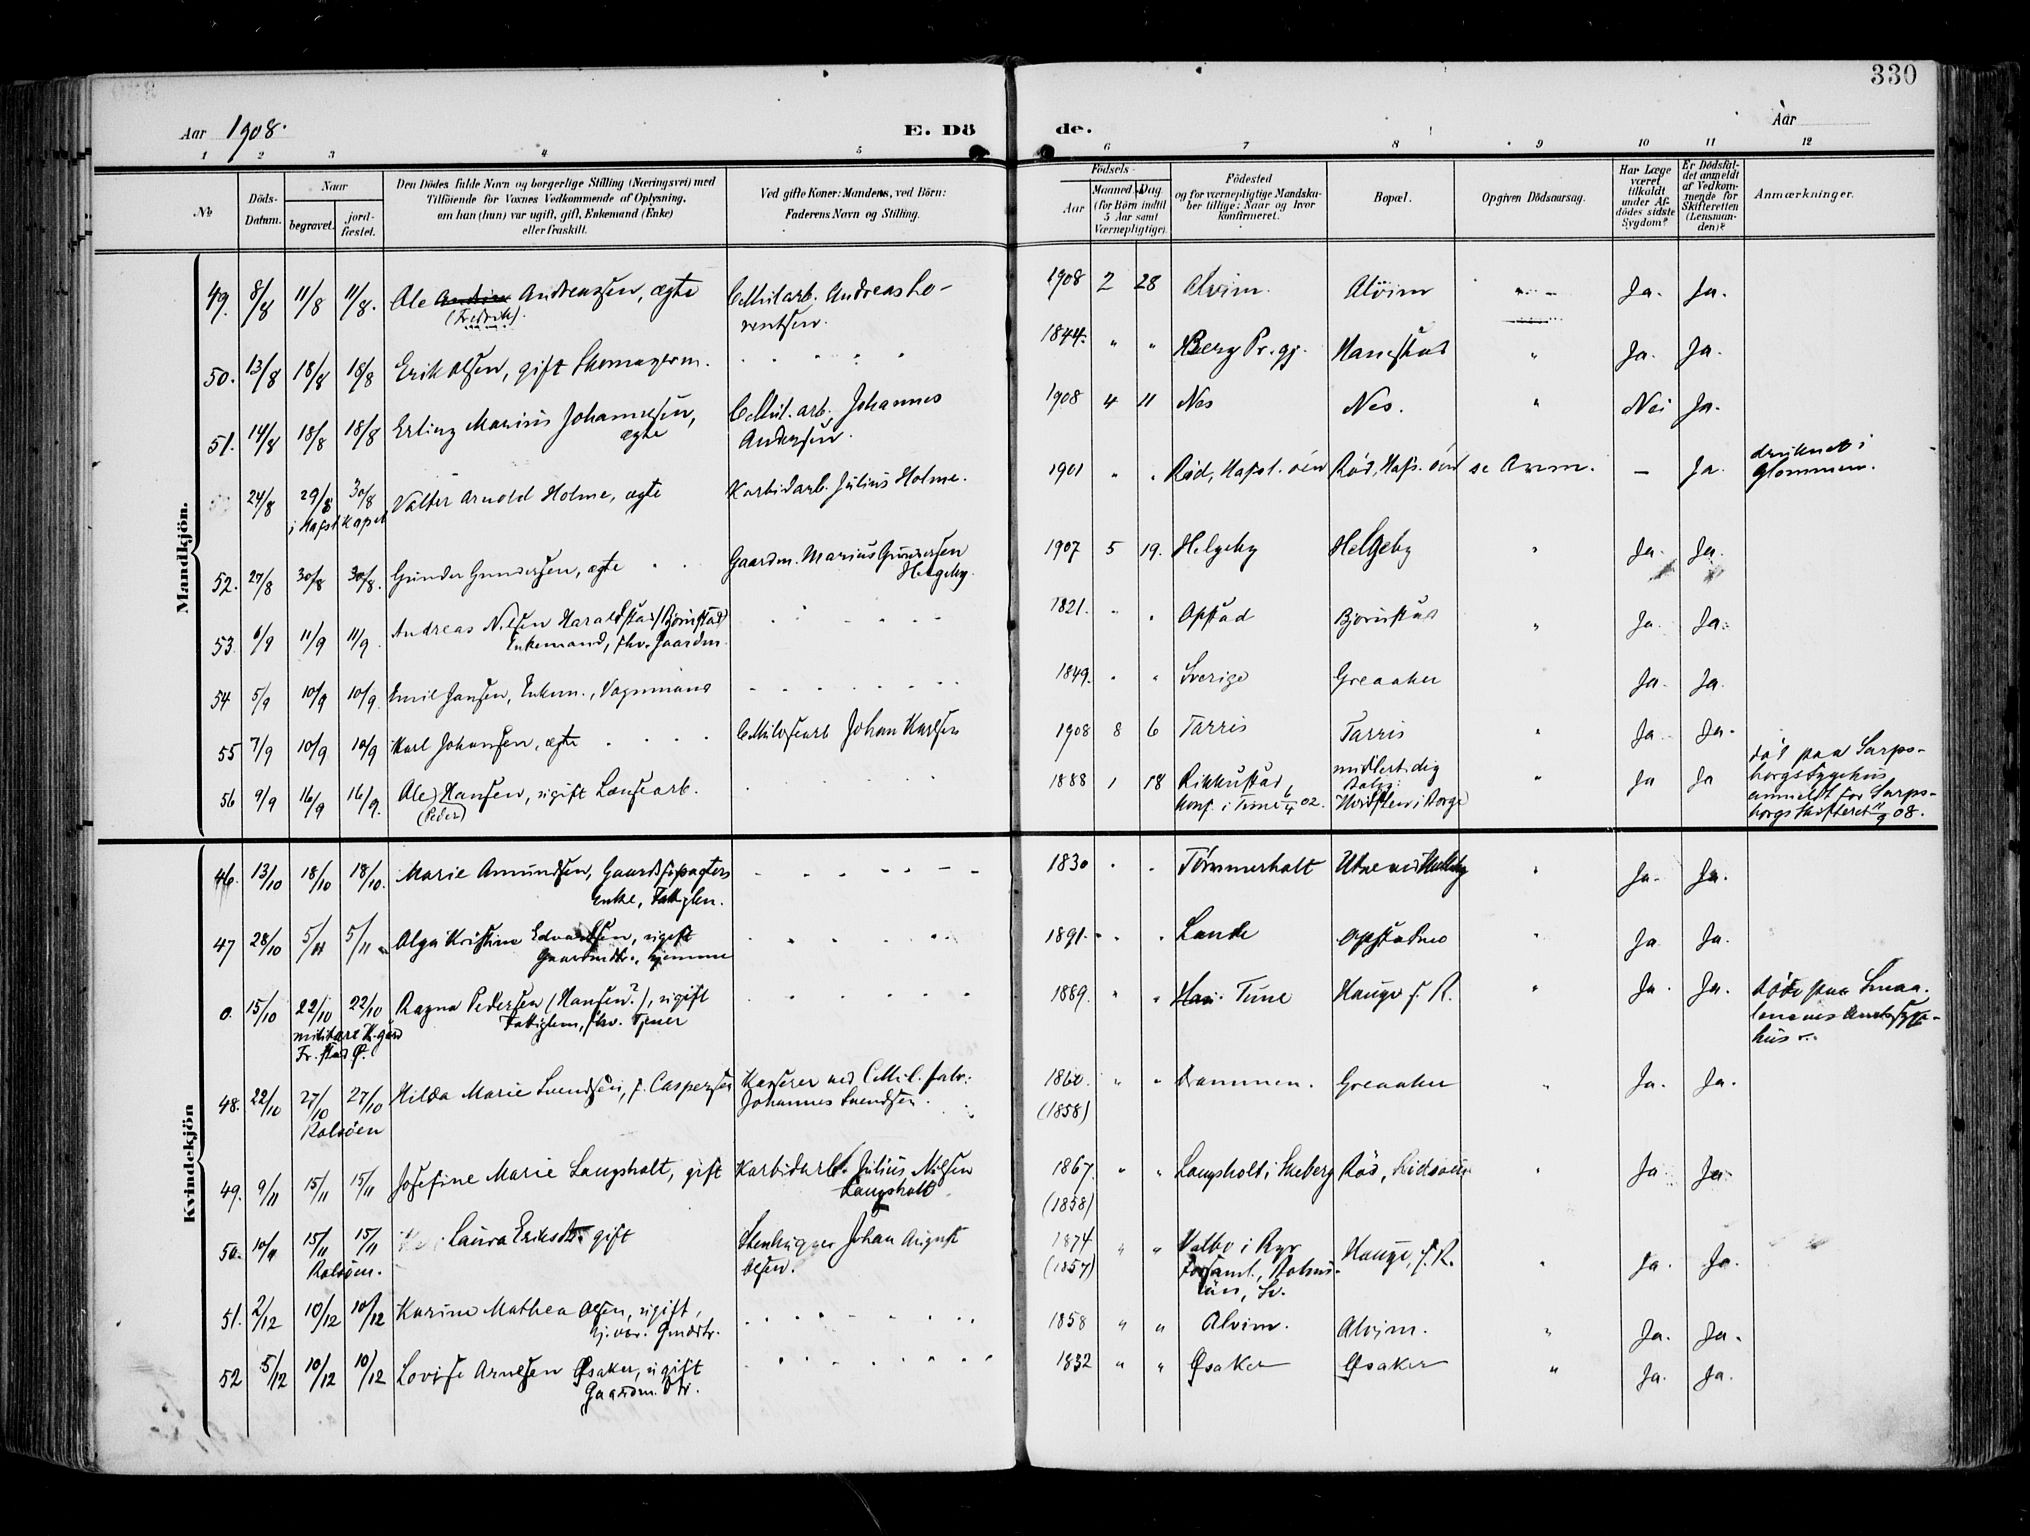 330
Aar 1908.
E. Dö de.
Aar
1 2 3 4 5 6 7 8 9 10 11 12
No
Döds-Datum.
Naar
begravet.
jord-fæstet.
Den Dödes fulde Navn og borgerlige Stilling (Næringsvei) med
Tilföiende for Voxnes Vedkommende af Oplysning,
om han (hun) var ugift, gift, Enkemand (Enke)
eller fraskilt.
Ved gifte Koner: Mandens, ved Börn:
Faderens Navn og Stilling.
Födsels-
Aar
Maaned
Dag
(for Börn indtil
5 Aar samt
Værnepligtige).
Födested
og for værnepligtige Mandska-
ber tillige: Naar og hvor
konfirmeret.
Bopæl.
Opgiven Dödsaarsag.
Har Læge
været
tilkaldt
under Af-
dödes sidste
Sygdom?
Er Dödsfal-
det anmeldt
af Vedkom-
mende for
Skifteretten
(Lensman-
den)?
Anmærkninger.
Mandkjön.
49. 8/8 11/8 11/8. Ole Andreassen, ægte C Mil arb. Andreas Lo- 1908 2 28 Alvim. Alvim " Ja. Ja.
(Fredrik). rentsen.
50. 13/8 18/8 18/8 Erik Olsen, gift Skomagerm. 1844. " " Berg Pr.gj. Hanestad " Ja. Ja.
51. 14/8 18/8 18/8 Erling Marius Johannesen, C Mil. arb. Johannes 1908 4 11 Nes Nes. " Nei Ja.
ægte Andersen.
24/8 29/8 30/8 Valter Arnold Holme, ægte Karbidarb. Julius Holme. 1901 " " Rød, Hafsl. öen Rød, Hafs. öen se Anm. — Ja. druknet i
i Hafsl. Kapel Glommen.
52. 27/8 30/8 30/8. Gunder Gundersen, ægte Gaardm. Marius Gundersen 1907 5 19. Helgeby Helgeby " Ja. Ja.
Helgeby.
53. 6/9 11/9 11/9. Andreas Nilsen Haraldstad/Bjørnstad 1821. " " Opstad Bjørnstad " Ja. Ja.
Enkemand, fhv. Gaardm.
54 5/9 10/9 10/9. Emil Jansen, Enkem., Vognmand 1849. " " Sverige Greaaker Ja. Ja.
55 7/9 10/9 10/9 Karl Johansen, ægte C Milosearb Johan Karlsen 1908 8 6 Tarris Tarris " Ja Ja.
56 9/9 16/9 16/9. Ole Hansen, ugift Lænsearb. 1888 1 18 midlertidig " Ja Ja død paa Sarps-
(Peder) Konf. i Tune 6/4 02. i Borge borgs Sygehus
anmeldt for Sarps-
borgs Skifteret 11/9 08.
Kvindekjön
46. 13/10 18/10 18/10. Marie Amundsen, Gaardsforpagters 1830 " " Tømmerholt " Ja. Ja.
Enke, Fattiglem.
47 28/10 5/11 5/11 Olga Kristine Edvardsen, ugift 1891. " " Lande " Ja Ja.
Gaardmdtr., hjemme
0. 15/10 22/10 22/10 Ragna Pedersen (Hansen?), ugift 1889. " " Tune Hauge f. R. " Ja. Ja. død paa Smaa-
militære K.gård Fattiglem, fhv. Tjener lenenes Amtssyge-
Fr.stad Ø. hus
48. 22/10 27/10 27/10 Hilda Marie Svendsen, f. Caspersen Kasserer ved C Mil. fabr. 1860. " " Drammen. Greaaker " Ja. Ja.
Rolvsøen Johannes Svendsen. (1858)
49. 9/11 15/11 15/11 Josefine Marie Langsholt, gift Karbidarb. Julius Nilsen 1867. " " Langsholt i Skeberg Rød, " Ja Ja.
Langsholt (1858)
50. 10/11 15/11 15/11 Laura Eriksdtr. gift Stenhugger Johan August 1874 " " Valbo i Ryr Hauge, f. R. " Ja. Ja.
Rolvsøen. Olsen. (1857) Forsaml., Bohus-
län, Sv.
51. 2/12 10/12 10/12 Karine Mathea Olsen, ugift, 1858 " " Alvim. Alvim. " Ja. Ja.
hj.vær. Gmdsdtr.
52 5/12 10/12 10/12 Lovise Arnesen Øsaker, ugift 1832 " " Øsaker Øsaker " Ja. Ja.
Gaardm. Dtr.